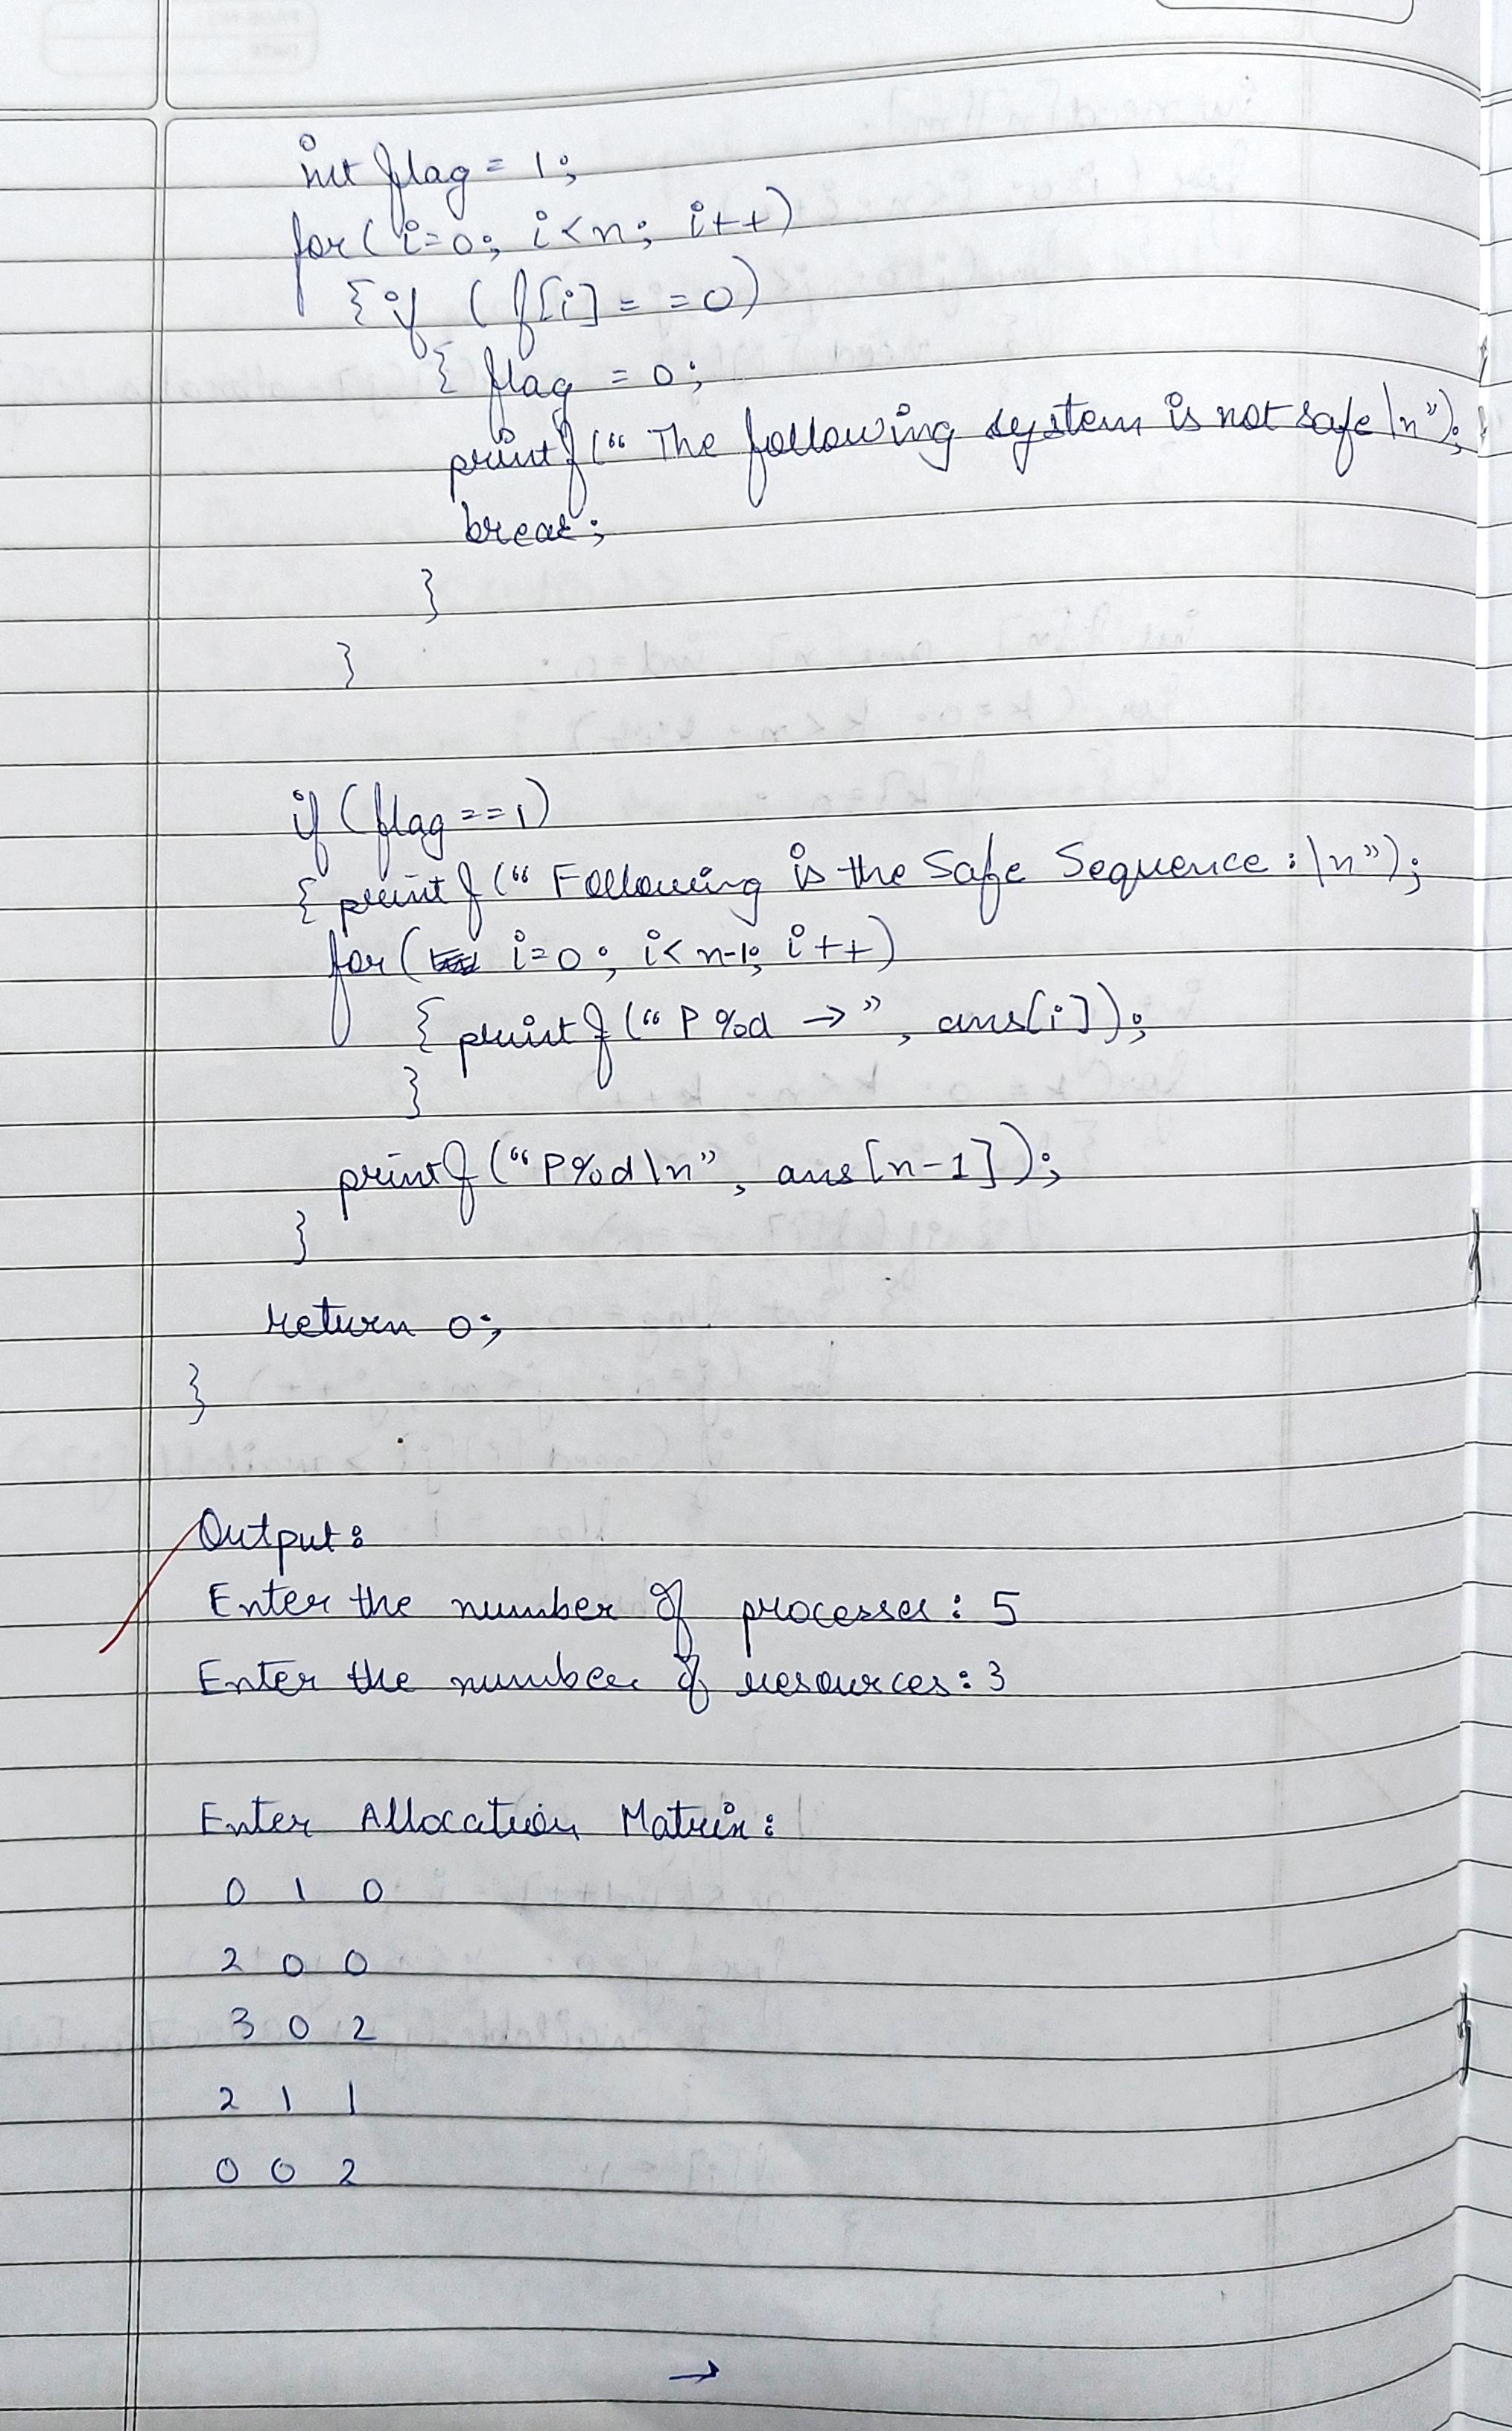 int flag = 1;
for( i=0; i<n; i++)
{ if ( f[i] = =0)
{ flag = 0;
printf(“ The following system is not safe \n”);
break;
}
}
if (flag ==1)
{ printf (“ Following is the Safe Sequence : \n”);
for( i=0; i< n-1; i++)
{ printf (“ P %d → ” , ans[i]);
}
printf (“ P%d \n” , ans [n-1]);
}
return 0;
}
Output:
Enter the number of processes : 5
Enter the number of resources : 3
Enter Allocation Matrix :
0 1 0
2 0 0
3 0 2
2 1 1
0 0 2
→